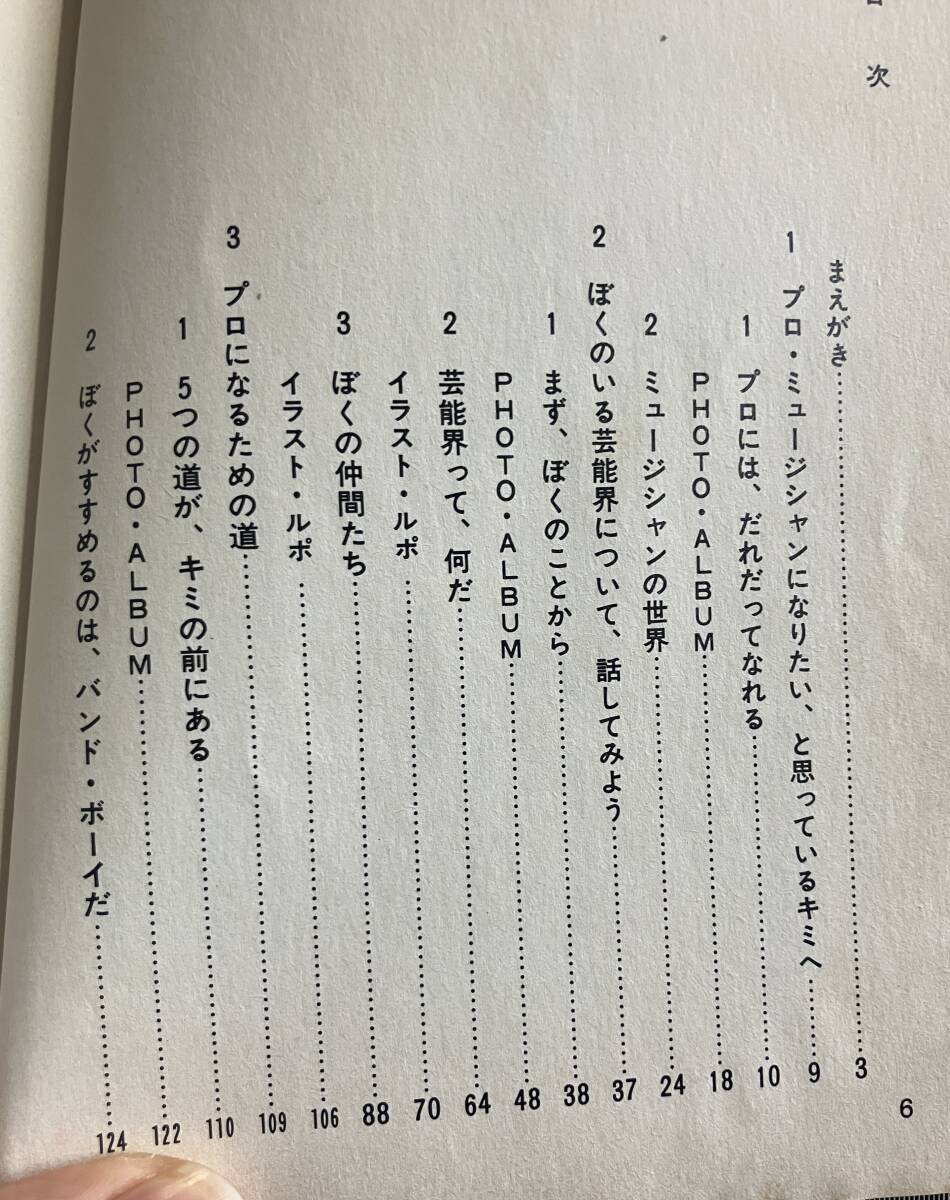 目次
まえがき……3
1 プロ・ミュージシャンになりたい、と思っているキミへ……9
1 プロには、だれだってなれる……10
PHOTO・ALBUM……18
2 ミュージシャンの世界……24
2 ぼくのいる芸能界について、話してみよう……37
1 まず、ぼくのことから……38
PHOTO・ALBUM……48
2 芸能界って、何だ……64
イラスト・ルポ……70
3 ぼくの仲間たち……88
イラスト・ルポ……106
3 プロになるための道……109
1 5つの道が、キミの前にある……110
PHOTO・ALBUM……122
2 ぼくがすすめるのは、バンド・ボーイだ……124
6